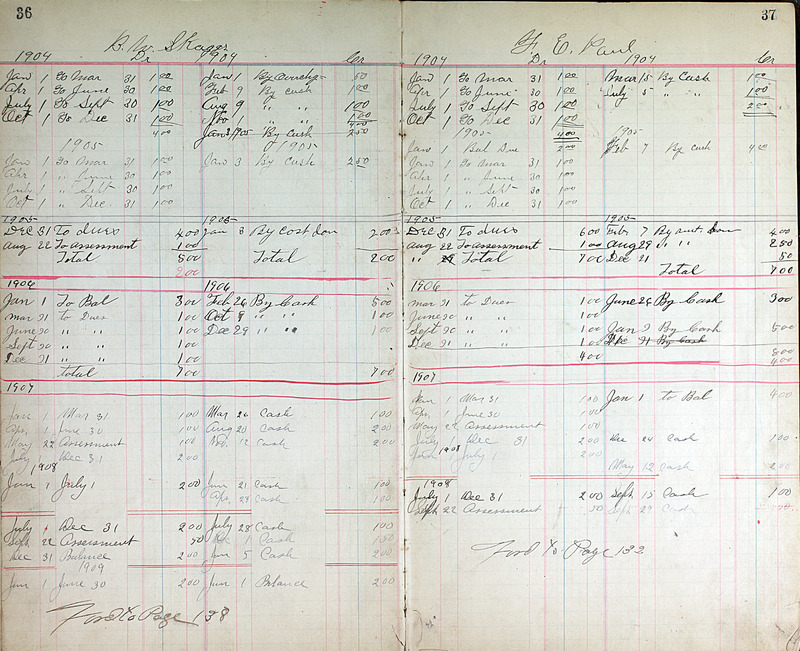 36
B. W. Skaggs
1904 Dr 1904 Cr
Jan 1 To Mar 31 1 00 Jan 1 By 50
Apr 1 To June 30 1 00 Feb 9 By cash 1 00
July 1 To Sept 30 1 00 Aug 9 " " 1 00
Oct 1 To Dec 31 1 00 Nov 1 " " 1 00
4 00 Jan 3 1905 By Cash 2 50
1905 1905
Jan 1 To Mar 31 1 00 Jan 3 By Cash 2 50
Apr 1 " June 30 1 00
July 1 " Sept 30 1 00
Oct 1 " Dec 31 1 00
1905 1905
Dec 31 To dues 4 00 Jan 3 By Cost 2 00
Aug 22 To assessment 1 00
Total 5 00 Total 2 00
2 00
1906 1906
Jan 1 To Bal 3 00 Feb 26 By Cash 5 00
Mar 31 to Dues 1 00 Oct 9 " " 1 00
June 30 " " 1 00 Dec 29 " " 1 00
Sept 30 " " 1 00
Dec 31 " " 1 00
total 7 00 7 00
1907
Jan 1 Mar 31 1 00 Mar 26 Cash 1 00
Apr 1 June 30 1 00 Aug 20 Cash 2 00
May 22 Assessment 1 00 12 Cash 2 00
July 1 Dec 31 2 00
1908
Jan 1 July 1 2 00 Jan 21 Cash 1 00
Apr 29 Cash 1 00
July 1 Dec 31 2 00 July 28 Cash 1 00
Sept 22 Assessment 50 Dec 1 Cash 1 50
Dec 31 Balance 2 00 Jan 5 Cash 2 00
1909
Jan 1 June 30 2 00 Jan 1 Balance 2 00
Ford to Page 138
37
F. E. Paul
1904 Dr 1904 Cr
Jan 1 To Mar 31 1 00 Mar 15 By Cash 1 00
Apr 1 To June 30 1 00 July 5 " " 1 00
July 1 To Sept 30 1 00 2 00
Oct 1 To Dec 31 1 00
1905 4 00 1905
Jan 1 Bal Due 2 00 Feb 7 By cash 4 00
Jan 1 To Mar 31 1 00
Apr 1 " June 30 1 00
July 1 " Sept 30 1 00
Oct 1 " Dec 31 1 00
1905 1905
Dec 31 To dues 6 00 Feb 7 By amt. 4 00
Aug 22 To assessment 1 00 Aug 29 " " 2 50
" " Total 7 00 Dec 21 50
Total 7 00
1906
Mar 31 to Dues 1 00 June 26 By Cash 3 00
June 30 " " 1 00
Sept 30 " " 1 00 Jan 9 By Cash 5 00
Dec 31 " " 1 00 Dec 31 By Cash
4 00 8 00
4 00
1907
Jan 1 Mar 31 1 00 Jan 1 to Bal 4 00
Apr 1 June 30 1 00
May 22 Assessment 1 00
July 1 Dec 31 2 00 Dec 24 Cash 1 00
1908 July 1 2 00
May 12 Cash 2 00
1908
July 1 Dec 31 2 00 Sept 15 Cash 1 00
Sept 22 Assessment 50 Sept 29 Cash
Ford to Page 132